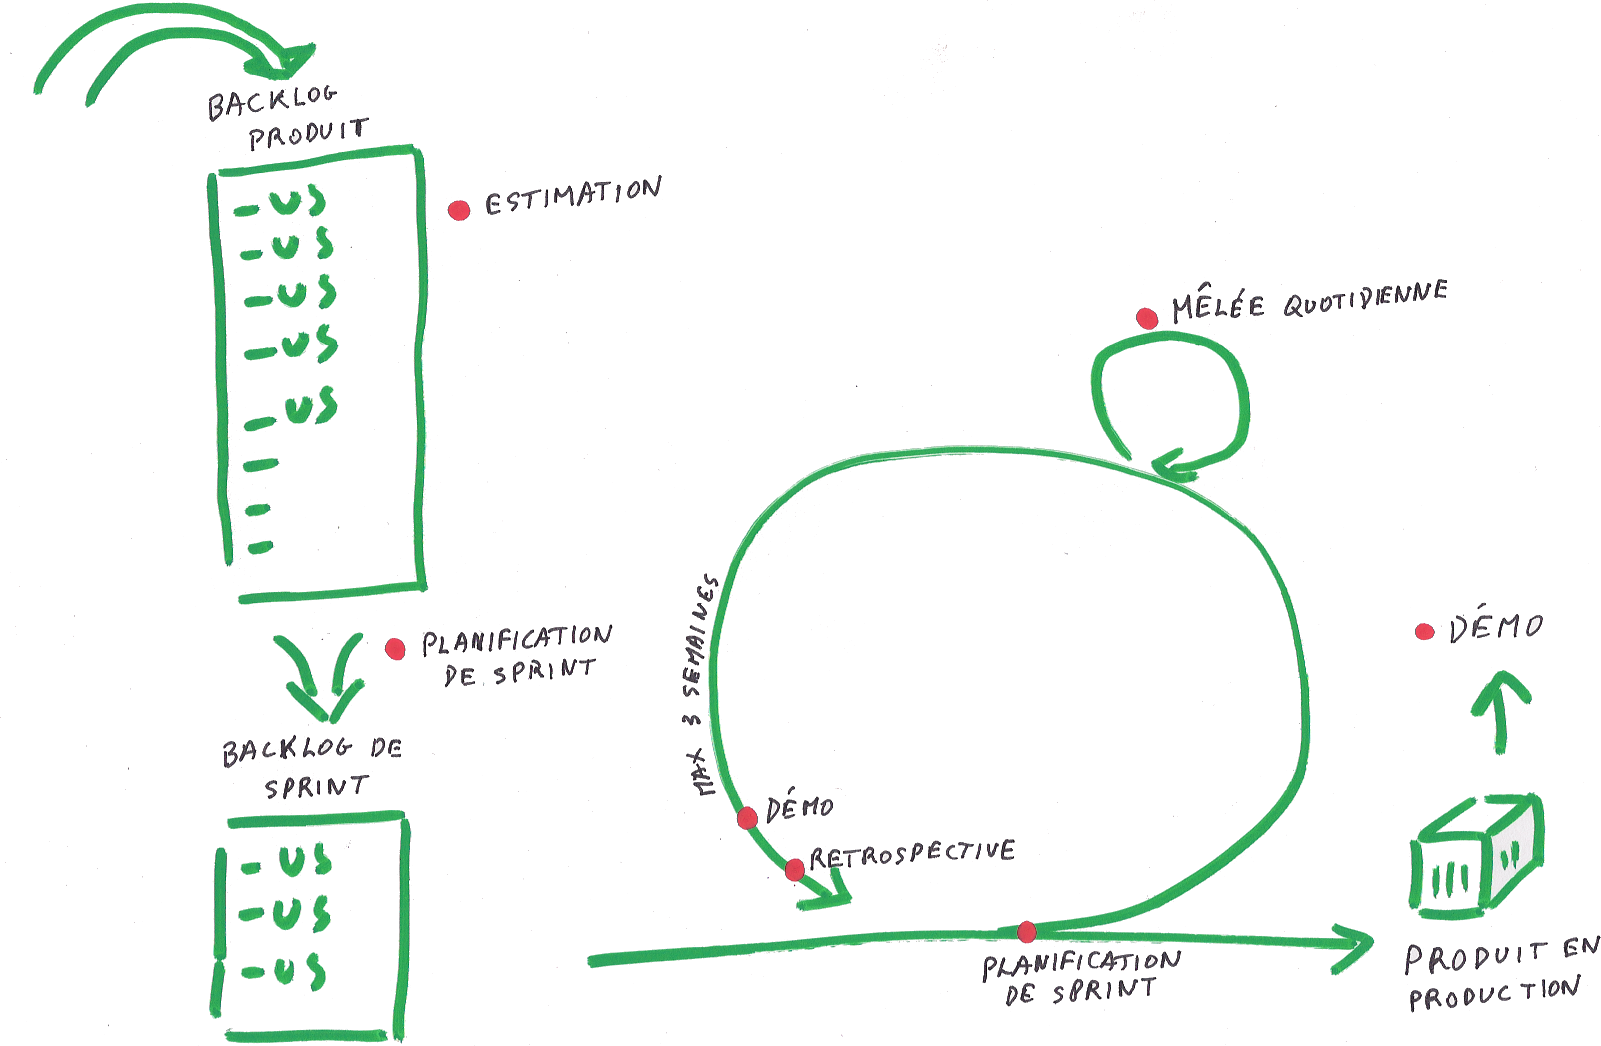 BACKLOG
PRODUIT
- US
- US
- US
- US
- US
-
-
-
ESTIMATION
PLANIFICATION
DE SPRINT
BACKLOG DE
SPRINT
- US
- US
- US
MÊLÉE QUOTIDIENNE
MAX 3 SEMAINES
DÉMO
RETROSPECTIVE
PLANIFICATION
DE SPRINT
DÉMO
PRODUIT EN
PRODUCTION